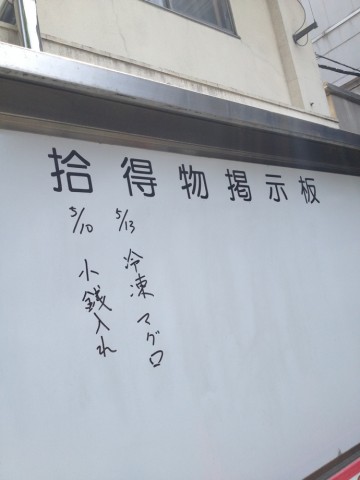 拾得物掲示板
5/13 冷凍マグロ
5/10 小銭入れ